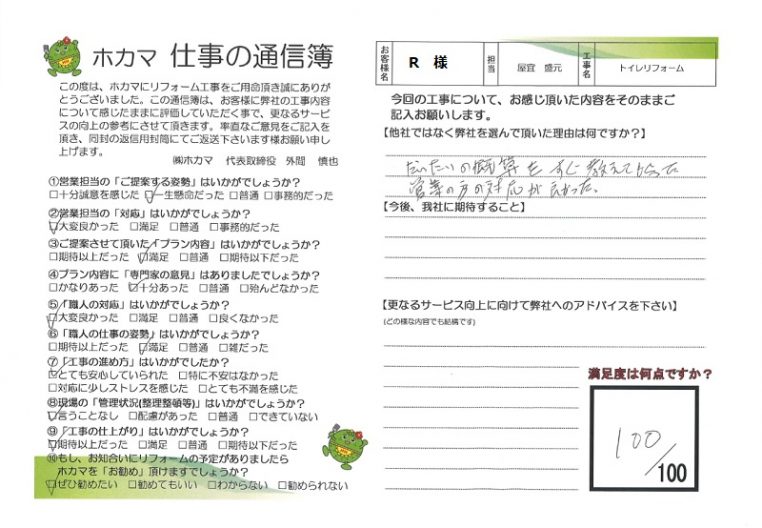 ホカマ 仕事の通信簿
この度は、ホカマにリフォーム工事をご用命頂き誠にありが
とうございました。この通信簿は、お客様に弊社の工事内容
について感じたままに評価していただく事で、更なるサービ
スの向上の参考にさせて頂きます。率直なご意見をご記入を
頂き、同封の返信用封筒にてご返送下さいます様お願い申し
上げます。
㈱ホカマ 代表取締役 外間 慎也
①営業担当の「ご提案する姿勢」はいかがでしょうか?
□十分誠意を感じた □一生懸命だった □普通 □事務的だった
②営業担当の「対応」はいかがでしょうか?
□大変良かった □満足 □普通 □事務的だった
③ご提案させて頂いた「プラン内容」はいかがでしょうか?
□期待以上だった □満足 □普通 □期待以下だった
④プラン内容に「専門家の意見」はありましたでしょうか?
□かなりあった □十分あった □普通 □殆んどなかった
⑤「職人の対応」はいかがでしょうか?
□大変良かった □満足 □普通 □良くなかった
⑥「職人の仕事の姿勢」はいかがでしょうか?
□期待以上だった □満足 □普通 □雑だった
⑦「工事の進め方」はいかがでしたか?
□とても安心していられた □特に不安はなかった
□対応に少しストレスを感じた □とても不満を感じた
⑧現場の「管理状況(整理整頓等)」はいかがでしょうか?
□言うことなし □配慮があった □普通 □できていない
⑨「工事の仕上がり」はいかがでしょうか?
□期待以上だった □満足 □普通 □期待以下だった
⑩もし、お知合いにリフォームの予定がありましたら
ホカマを「お勧め」頂けますでしょうか?
□ぜひ勧めたい □勧めてもいい □わからない □勧められない
お客様名 R 様 担当 屋宜 盛元 工事名 トイレリフォーム
今回の工事について、お感じ頂いた内容をそのままご
記入お願します。
【他社ではなく弊社を選んで頂いた理由は何ですか?】
だいたいの概算をすぐ教えてもらった
営業の方の対応が良かった。
【今後、我社に期待すること】
【更なるサービス向上に向けて弊社へのアドバイスを下さい】
(どの様な内容でも結構です)
満足度は何点ですか?
100/100